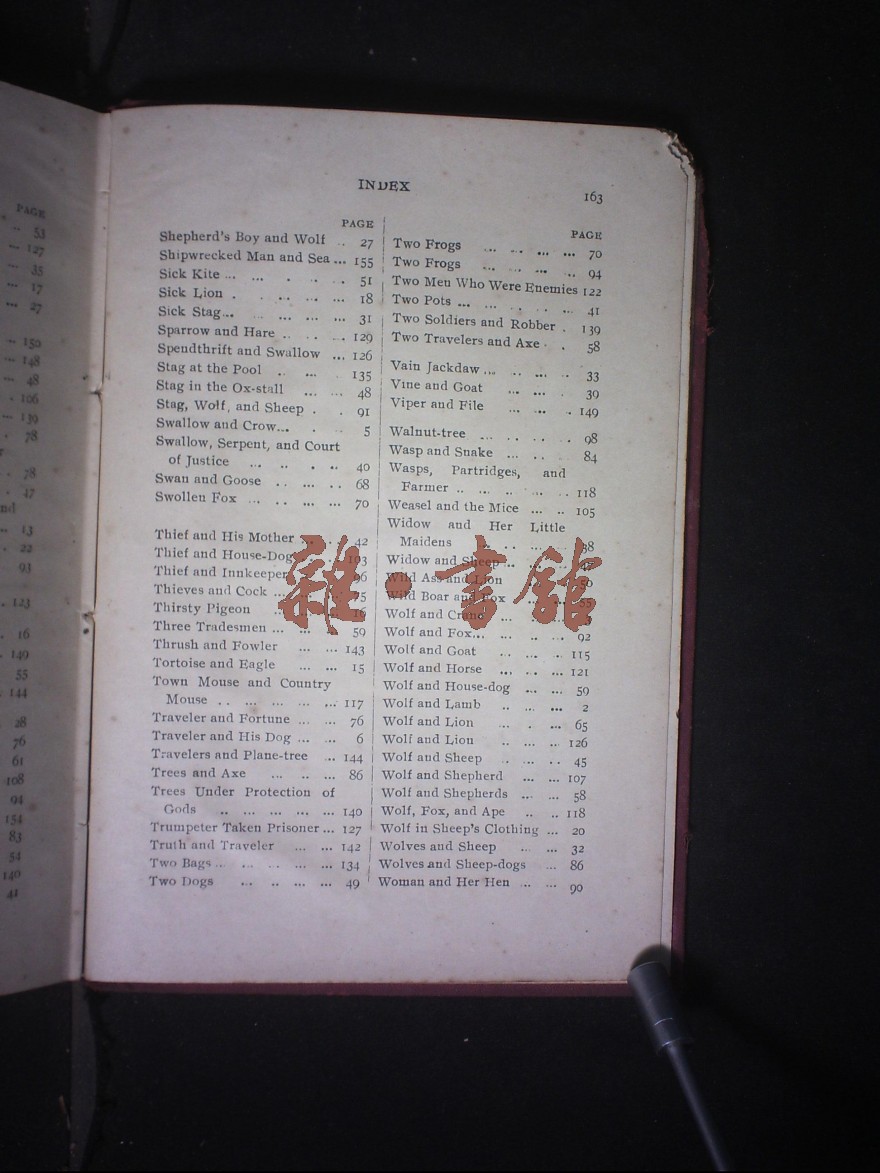 PAGE
53
127
35
17
27
150
148
48
106
139
78
78
47
nd
13
22
93
123
16
149
55
144
28
76
61
108
94
154
83
54
140
41
INDEX
163
PAGE
Shepherd's Boy and Wolf .. 27
Shipwrecked Man and Sea ... 155
Sick Kite ... ... . . . ... 51
Sick Lion . . .. ... ... 18
Sick Stag... .. ... ... ... 31
Sparrow and Hare .. .. . ... 129
Spendthrift and Swallow ... 126
Stag at the Pool .. ... . 135
Stag in the Ox-stall ... ... 48
Stag, Wolf, and Sheep . . 91
Swallow and Crow... . . 5
Swallow, Serpent, and Court
of Justice ... .. .. .. 40
Swan and Goose .. ... .. ... 68
Swollen Fox ... .. ... ... 70
Thief and His Mother ... . . 42
Thief and House-Dog . . 103
Thief and Innkeeper 96
Thieves and Cock ... 75
Thirsty Pigeon ... 16
Three Tradesmen ... ... . 59
Thrush and Fowler ... ... 143
Tortoise and Eagle ... ... 15
Town Mouse and Country
Mouse . . ... ... ... ... 117
Traveler and Fortune ... ... 76
Traveler and His Dog ... ... 6
Travelers and Plane-tree .. 144
Trees and Axe ... .. ... 86
Trees Under Protection of
Gods .. ... ... ... ... 140
Trumpeter Taken Prisoner ... 127
Truth and Traveler ... ... 142
Two Bags ... ... ... ... ... 134
Two Dogs ... .. ... ... 49
PAGE
Two Frogs ... ... ... ... 70
Two Frogs ... ... ... .. 94
Two Men Who Were Enemies 122
Two Pots ... ... ... . .. 41
Two Soldiers and Robber . 139
Two Travelers and Axe . . 58
Vain Jackdaw ... .. ... .. 33
Vine and Goat ... ... . 39
Viper and File ... ... . 149
Walnut-tree ... . . . . 98
Wasp and Snake ... .. . 84
Wasps, Partridges, and
Farmer .. ... .. ... .. 118
Weasel and the Mice ... .. 105
Widow and Her Little
Maidens .. ... ... 38
Widow and Sheep ... .. 47
Wild Ass and Lion 50
Wild Boar and Fox 55
Wolf and Crane ...
Wolf and Fox... ... .. ... 92
Wolf and Goat .. .. ... 115
Wolf and Horse ... .. ... 121
Wolf and House-dog ... ... 59
Wolf and Lamb .. ... ... 2
Wolf and Lion ... . ... 65
Wolf and Lion .. ... ... 126
Wolf and Sheep .. ... .. 45
Wolf and Shepherd ... ... 107
Wolf and Shepherds ... ... 58
Wolf, Fox, and Ape .. .. 118
Wolf in Sheep's Clothing ... 20
Wolves and Sheep ... ... 32
Wolves and Sheep-dogs ... 86
Woman and Her Hen ... ... 90
雜·書館